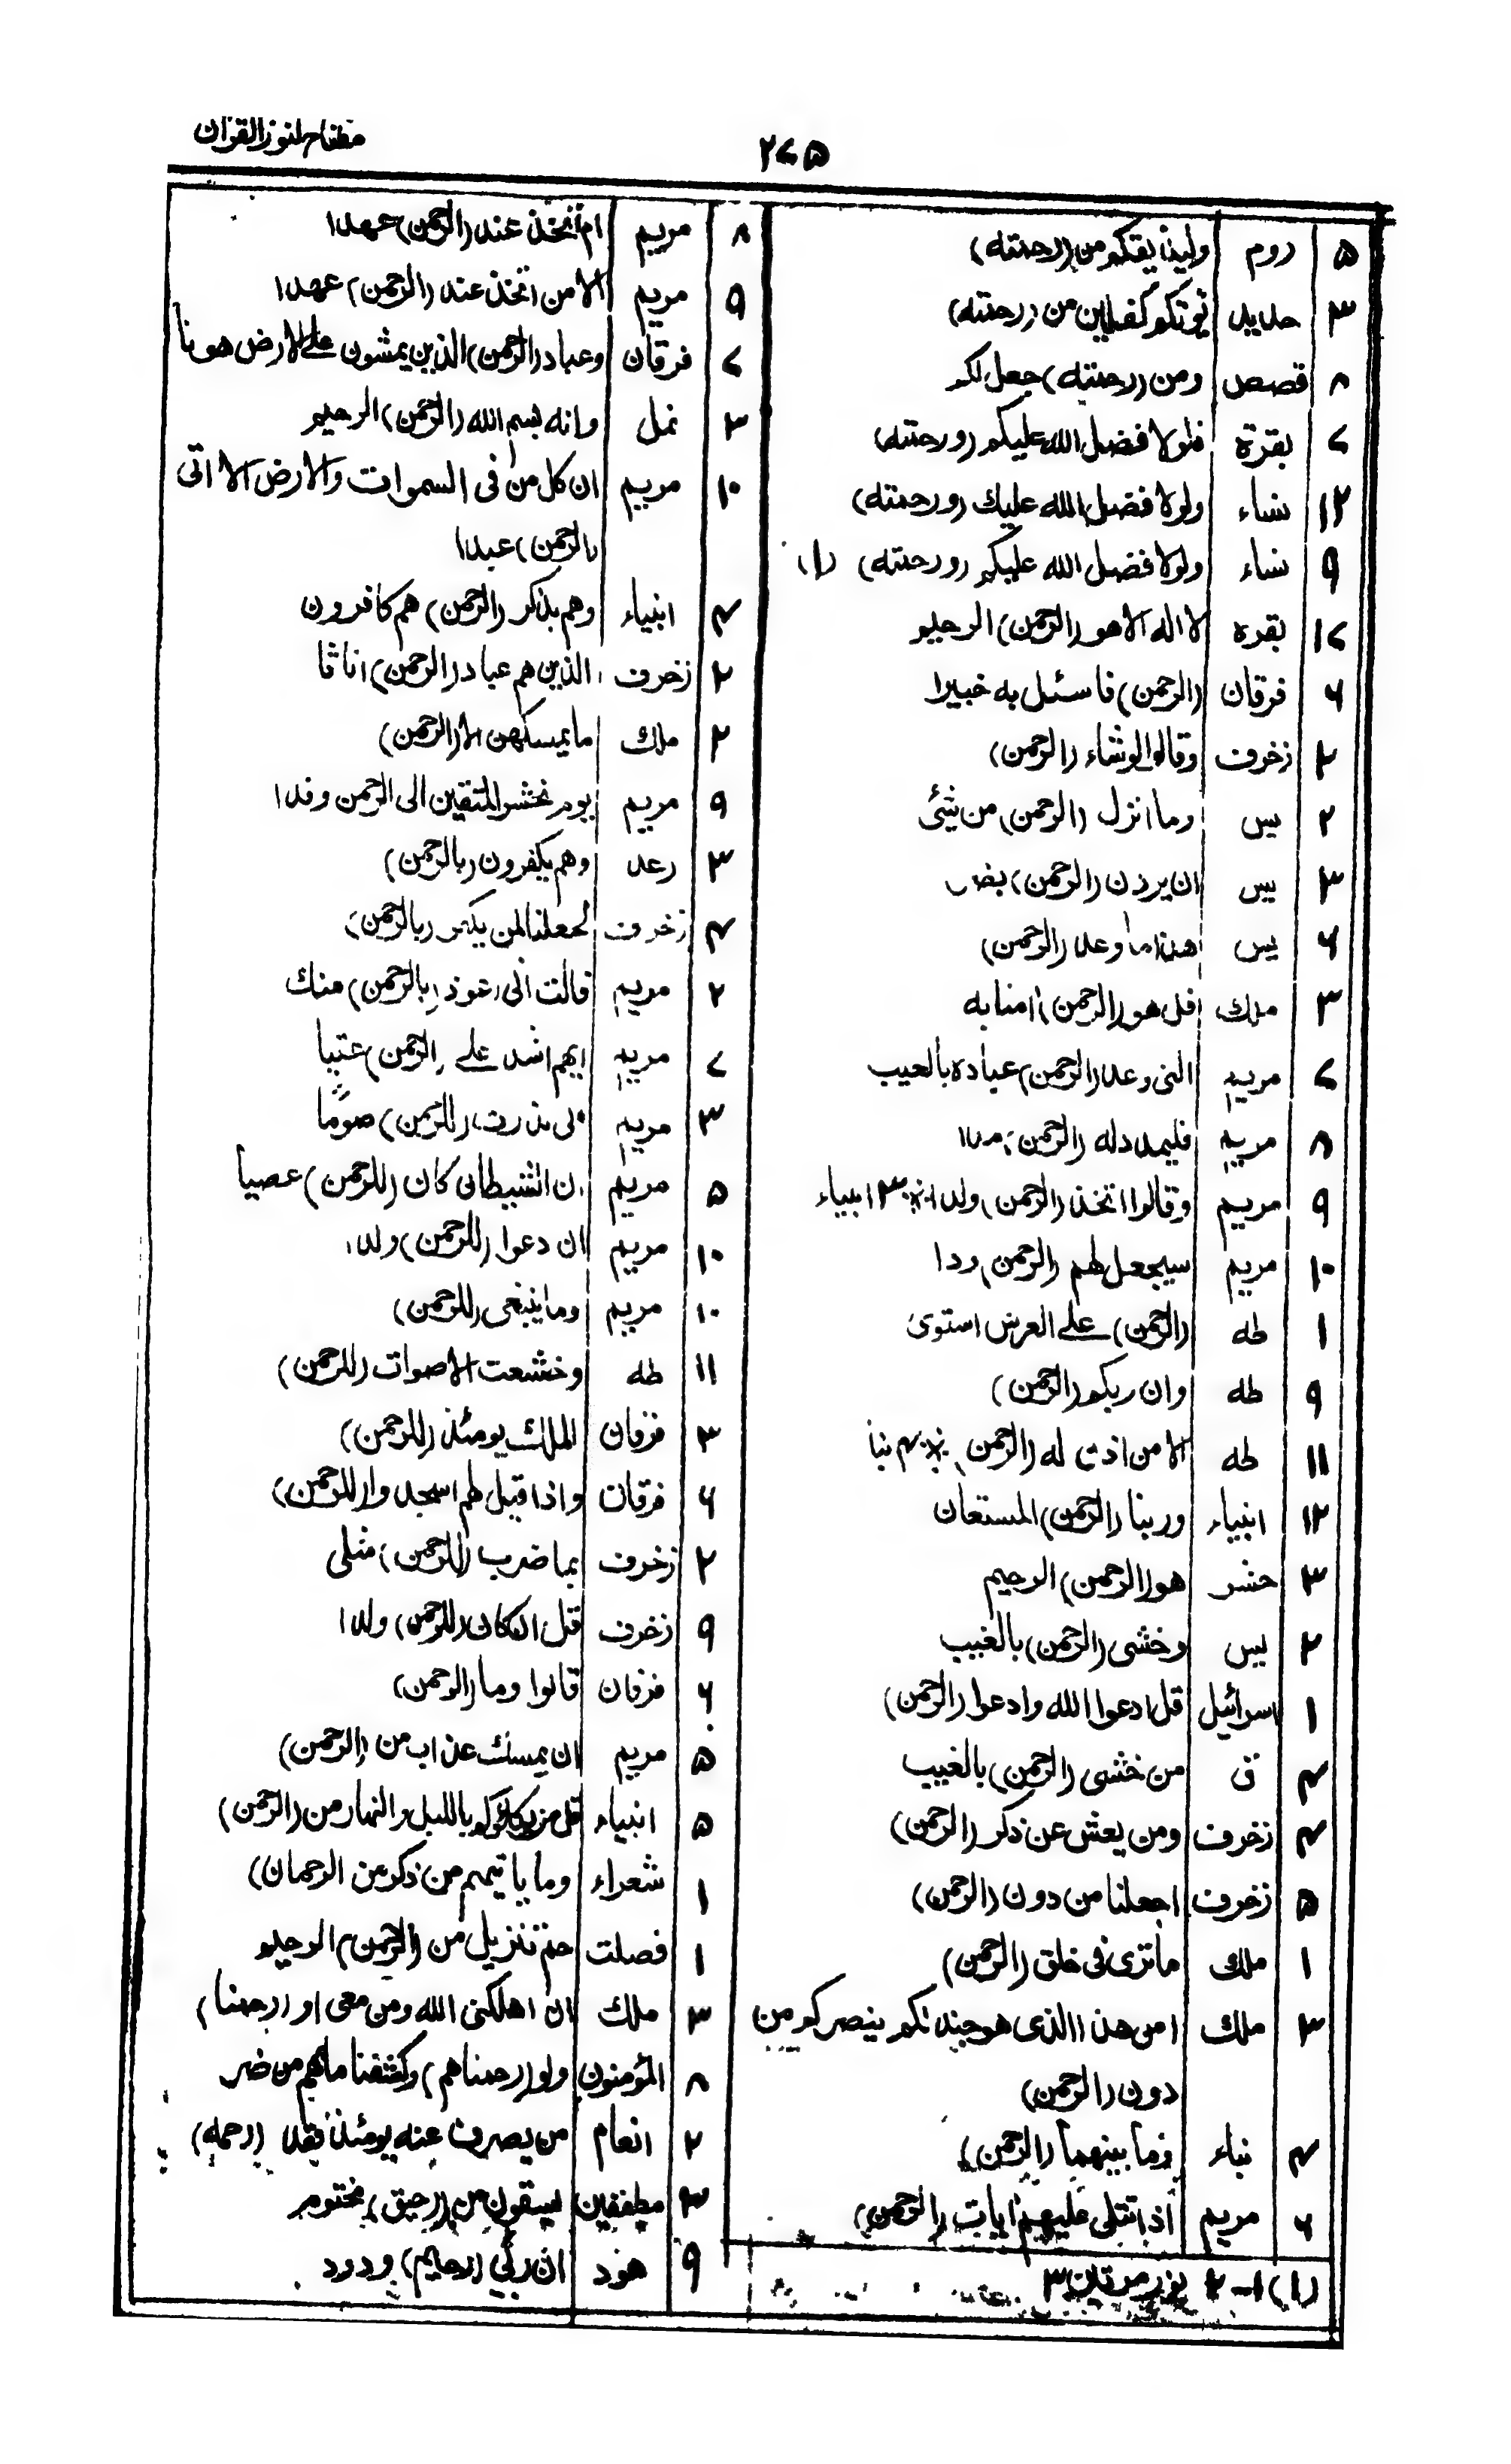 ۲۷۵
مفتاح کنوز القرآن
۵ روم ولیذیقکم من (رحمته)
۳ حدید یؤتکم کفلین من (رحمته)
۸ قصص ومن (رحمته) جعل لکم
۷ بقرة فلولا فضل الله علیکم (ورحمته)
۱۲ نساء ولولا فضل الله علیك (ورحمته)
۹ نساء ولولا فضل الله علیکم (ورحمته) (۱)
۱۷ بقره لا اله الا هو (الرحمن) الرحیم
۶ فرقان (الرحمن) فاسئل به خبیرا
۲ زخرف وقالوا لو شاء (الرحمن)
۲ یس وما انزل (الرحمن) من شئ
۳ یس ان یردن (الرحمن) بضر
۶ یس هذا ما وعد (الرحمن)
۳ ملك قل هو (الرحمن) امنا به
۷ مریم التی وعد (الرحمن) عباده بالغیب
۸ مریم فلیمدد له (الرحمن) مدا
۹ مریم وقالوا اتخذ (الرحمن) ولدا ۳ انبیاء
۱۰ مریم سیجعل لهم (الرحمن) ودا
۱ طه (الرحمن) علی العرش استوی
۹ طه وان ربکم (الرحمن)
۱۱ طه الا من اذن له (الرحمن) ۴ نبا
۱۲ انبیاء وربنا (الرحمن) المستعان
۳ حشر هو (الرحمن) الرحیم
۲ یس وخشی (الرحمن) بالغیب
۱ اسرائیل قل ادعوا الله وادعوا (الرحمن)
۴ ق من خشی (الرحمن) بالغیب
۴ زخرف ومن یعش عن ذکر (الرحمن)
۵ زخرف اجعلنا من دون (الرحمن)
۱ ملك ما تری فی خلق (الرحمن)
۳ ملك امن هذا الذی هو جند لکم ینصرکم من
دون (الرحمن)
۴ نباء وما بینهما (الرحمن)
۶ مریم اذا تتلی علیهم ایات (الرحمن)
(۱) ۱-۲ نور مرتان ۳
۸ مریم ام اتخذ عند (الرحمن) عهدا
۹ مریم الا من اتخذ عند (الرحمن) عهدا
۷ فرقان وعباد (الرحمن) الذین یمشون علی الارض هونا
۳ نمل وانه بسم الله (الرحمن) الرحیم
۱۰ مریم ان کل من فی السموات والارض الا اتی
(الرحمن) عبدا
۴ انبیاء وهم بذکر (الرحمن) هم کافرون
۲ زخرف الذین هم عباد (الرحمن) اناثا
۲ ملك ما یمسکهن الا (الرحمن)
۹ مریم یوم نحشر المتقین الی الرحمن وفدا
۳ رعد وهم یکفرون (بالرحمن)
۴ زخرف لجعلنا لمن یکفر (بالرحمن)
۲ مریم قالت انی اعوذ (بالرحمن) منك
۷ مریم ایهم اشد علی (الرحمن) عتیا
۳ مریم انی نذرت (للرحمن) صوما
۵ مریم ان الشیطان کان (للرحمن) عصیا
۱۰ مریم ان دعوا (للرحمن) ولدا
۱۰ مریم وما ینبغی (للرحمن)
۱۱ طه وخشعت الاصوات (للرحمن)
۳ فرقان الملك یومئذ (للرحمن)
۶ فرقان واذا قیل لهم اسجدوا (للرحمن)
۲ زخرف بما ضرب (للرحمن) مثلی
۹ زخرف قل ان کان (للرحمن) ولدا
۶ فرقان قالوا وما (الرحمن)
۵ مریم ان یمسك عذاب من (الرحمن)
۵ انبیاء قل من یکلؤکم باللیل والنهار من (الرحمن)
۱ شعراء وما یاتیهم من ذکر من الرحمان)
۱ فصلت حم تنزیل من (الرحمن) الرحیم
۳ ملك ان اهلکنی الله ومن معی او (رحمنا)
۸ المؤمنون ولو (رحمناهم) وکشفنا ما بهم من ضر
۲ انعام من یصرف عنه یومئذ فقد (رحمه)
۳ مطففین یسقون من (رحیق) مختوم
۹ هود ان ربی (رحیم) ودود